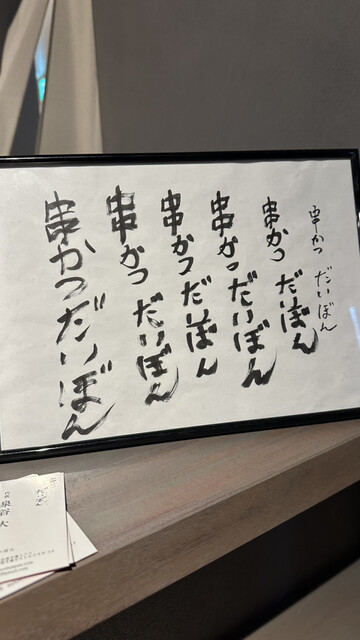 串かつ だいぼん
串かつ だいぼん
串かつ だいぼん
串かつ だいぼん
串かつ だいぼん
串かつだいぼん
だいぼん